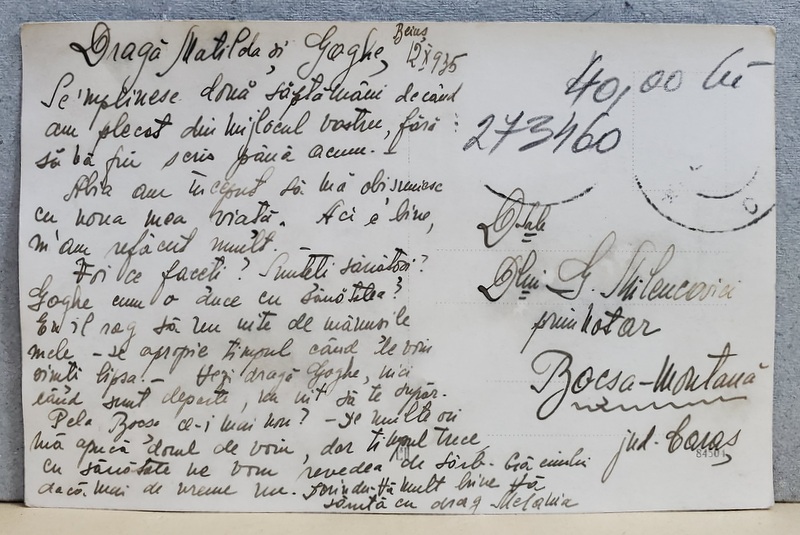 Dragă Matilda și Goghe,
Beiuș
12 XI 935
Se'mplinesc două săptămâni decând
am plecat din mijlocul vostru, fără
să vă fiu scris până acum. –
Abia am început să mă obisnuiesc
cu noua mea viață. Aci e bine,
m'am refăcut mult.
Voi ce faceti? Sunteti sănătosi?
Goghe cum o duce cu sănătatea?
Eu îl rog să nu uite de mănusile
mele – se apropie timpul când le voiu
simti lipsa. – Vezi dragă Goghe, nici
când sunt departe, nu uit să te supăr.
Pela Bocsa ce-i mai nou? – De multe ori
mă apucă dorul de voiu, dar timpul trece
cu sănătate ne vom revedea de sărb. Crăciunului
dacă mai de vreme nu. Dorindu-vă mult bine vă
sărută cu drag Melania
40,00 lei
273460
Dsale
Dlui G. Milencovici
prim notar
Bocsa-Montană
jud. Caraș
84501